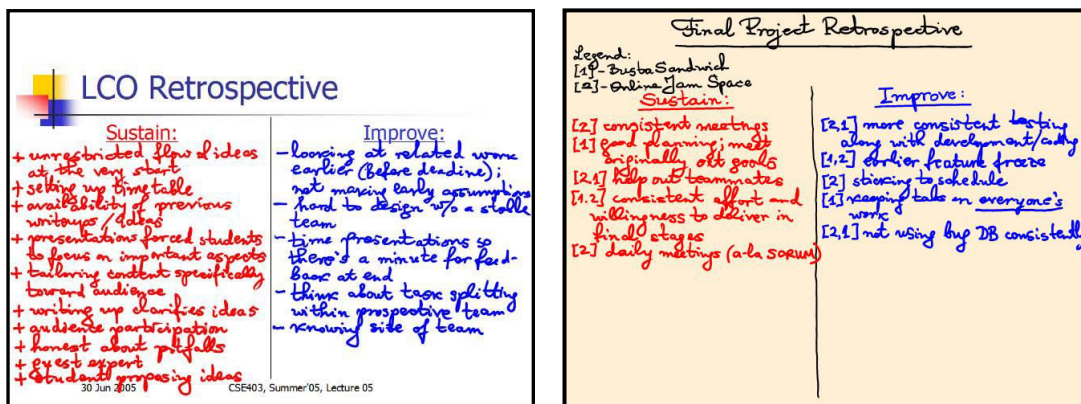 LCO Retrospective
Sustain:
+ unrestricted flow of ideas
at the very start
+ setting up timetable
+ availability of previous
writeups/ideas
+ presentation forced students
to focus on important aspects
+ tailoring content specifically
toward audience
+ writing up clarifies ideas
+ audience participation
+ honest about pitfalls
+ guest expert
+ student proposing ideas
Improve:
- looking at related work
earlier (before deadine);
not making early assumptions
- hard to design w/o a stable
team
- time presentations so
there's a minute for feed-
back at end
- think about task splitting
within prospective team
- knowing size of team
30 Jun 2005
CSE403, Summer'05, Lecture 05
Final Project Retrospective
Legend:
[1]-BustaSandwich
[2]-Online Jam Space
Sustain:
[2] consistent meetings
[1] good planning; meet
originally out goals
[2,1] help out teammates
[1,2] consistent effort and
willingness to deliver in
final stages
[2] daily meetings (a-la SCRUM)
Improve:
[2,1] more consistent testing
along with development/coding
[1,2] earlier feature freeze
[2] sticking to schedule
[1] keeping tabs on everyone's
work
[2,1] not using bug DB consistently